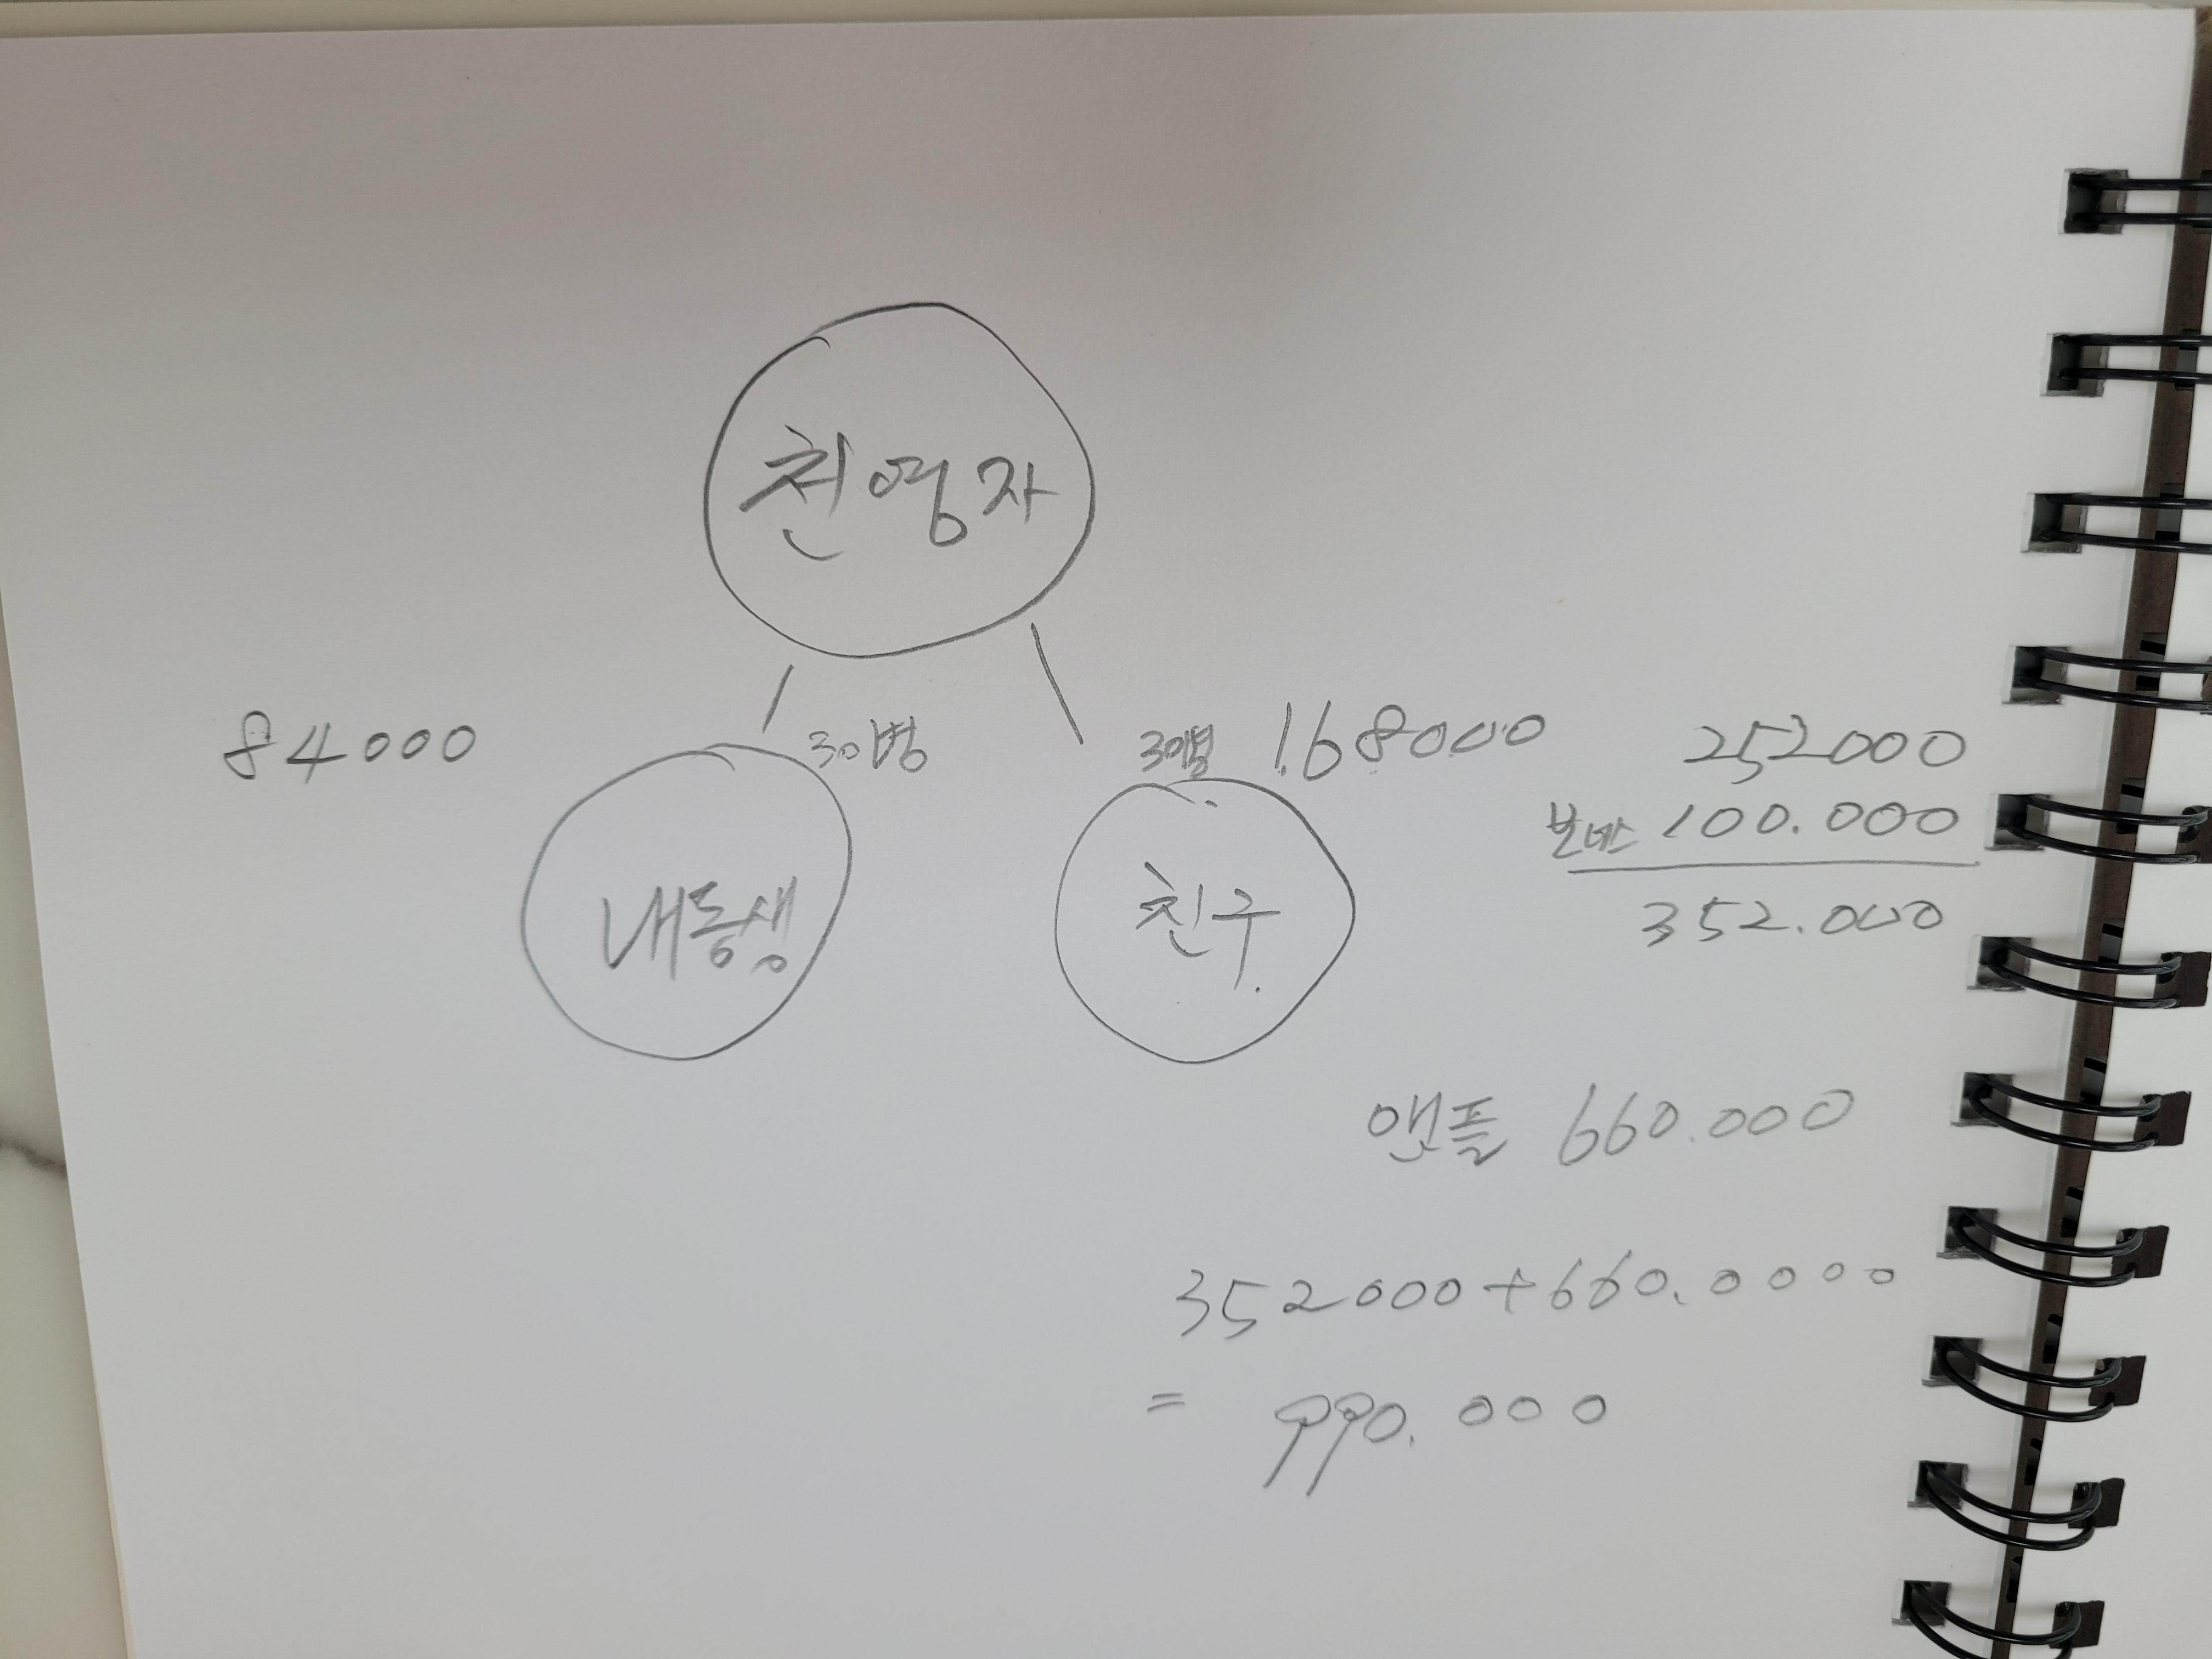 천영자
84000
30병
30병
168000
내동생
친구.
252000
100.000
352.000
앤플 660.000
352000+660.0000
= 990.000